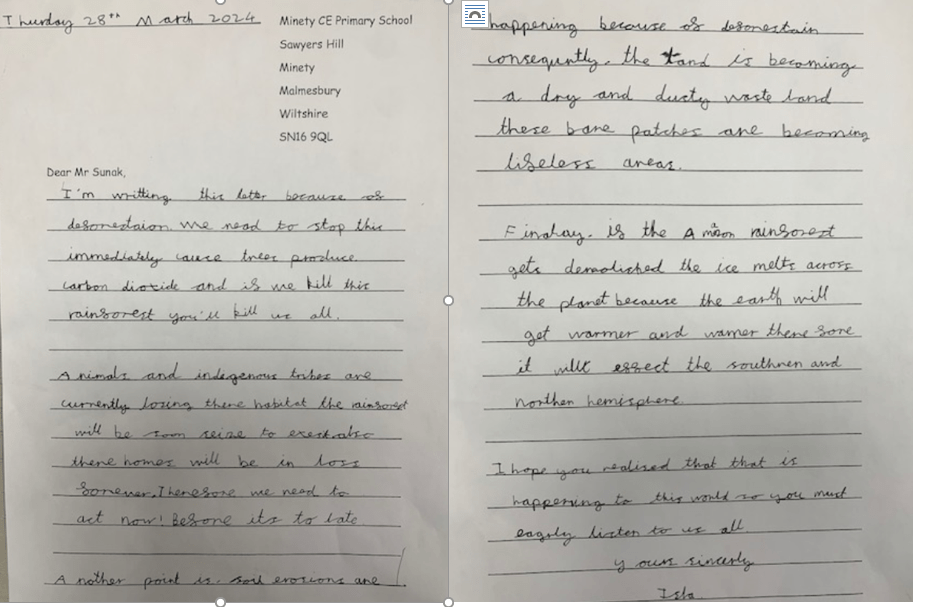 Thurday 28th March 2024
Minety CE Primary School
Sawyers Hill
Minety
Malmesbury
Wiltshire
SN16 9QL
Dear Mr Sunak,
I'm writting this letter because of
deforestaion we need to stop this
immediately cause trees produce
carbon dioxide and if we kill this
rainforest you'll kill us all.
Animals and indegenous tribes are
currently losing there habitat the rainforest
will be soon seize to exest also
there homes will be in loss
forever. Therefore we need to
act now! Before its to late
Another point is. soil erosions are
happening because of deforestain
consequntly. the land is becoming
a dry and dusty waste land
these bare patches are becoming
lifeless areas.
Finalay. if the Amazon rainforest
gets demolished the ice melts across
the planet because the earth will
get warmer and warmer there fore
it will effect the southren and
northen hemisphere.
I hope you realised that that is
happening to this world so you must
eagerly listen to us all
yours sincerly
Isla